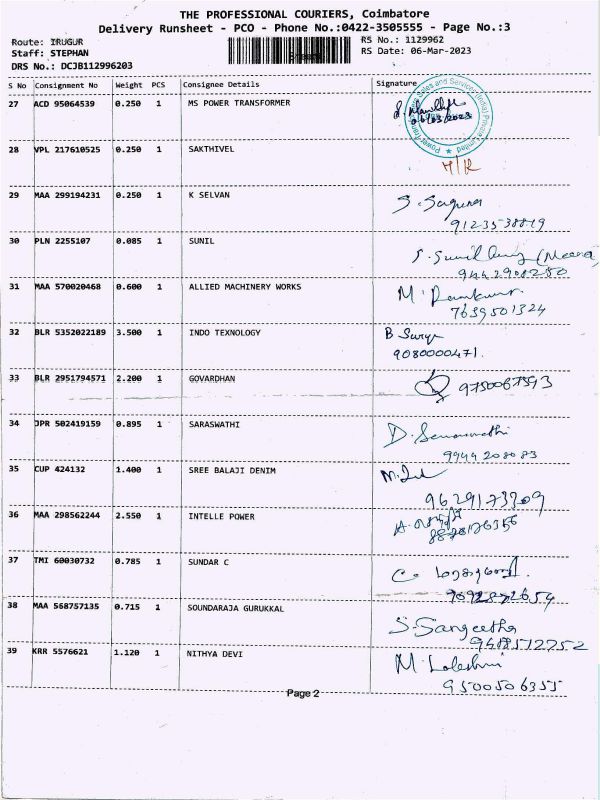 THE PROFESSIONAL COURIERS, Coimbatore
Delivery Runsheet - PCO - Phone No.:0422-3505555 - Page No.:3
Route: IRUGUR RS No.: 1129962
Staff: STEPHAN RS Date: 06-Mar-2023
DRS No.: DCJB112996203
S No Consignment No Weight PCS Consignee Details Signature
27 ACD 95064539 0.250 1 MS POWER TRANSFORMER
06/03/2023
28 VPL 217610525 0.250 1 SAKTHIVEL
29 MAA 299194231 0.250 1 K SELVAN S. Saguna
9123538849
30 PLN 2255107 0.085 1 SUNIL
9442908250
31 MAA 570020468 0.600 1 ALLIED MACHINERY WORKS
7639501324
32 BLR 5352022189 3.500 1 INDO TEXNOLOGY B Surya
9080000471.
33 BLR 2951794571 2.200 1 GOVARDHAN 9750067593
34 JPR 502419159 0.895 1 SARASWATHI D. Saraswathi
9944208083
35 CUP 424132 1.400 1 SREE BALAJI DENIM
9629173209
36 MAA 298562244 2.550 1 INTELLE POWER
37 TMI 60030732 0.785 1 SUNDAR C
38 MAA 568757135 0.715 1 SOUNDARAJA GURUKKAL S. Sangeetha
9488512252
39 KRR 5576621 1.120 1 NITHYA DEVI
9500506355
Page 2